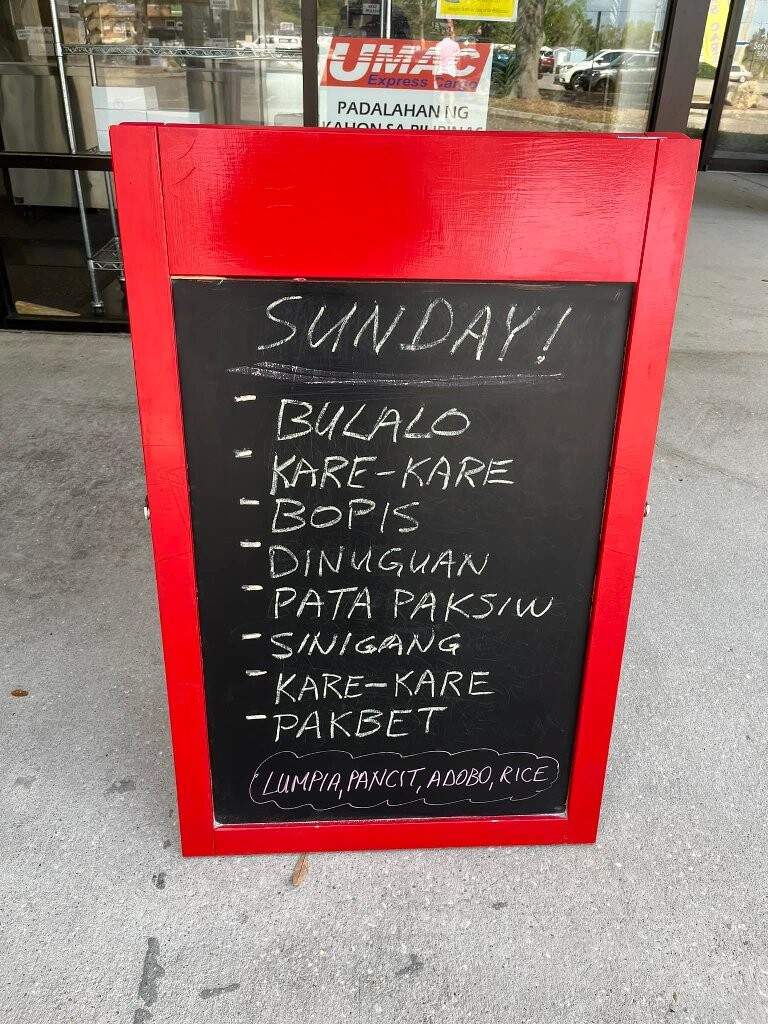 UMAC
Express Cargo
PADALAHAN NG
KAHON SA PILIPINAS
SUNDAY!
- BULALO
- KARE-KARE
- BOPIS
- DINUGUAN
- PATA PAKSIW
- SINIGANG
- KARE-KARE
- PAKBET
LUMPIA, PANCIT, ADOBO, RICE